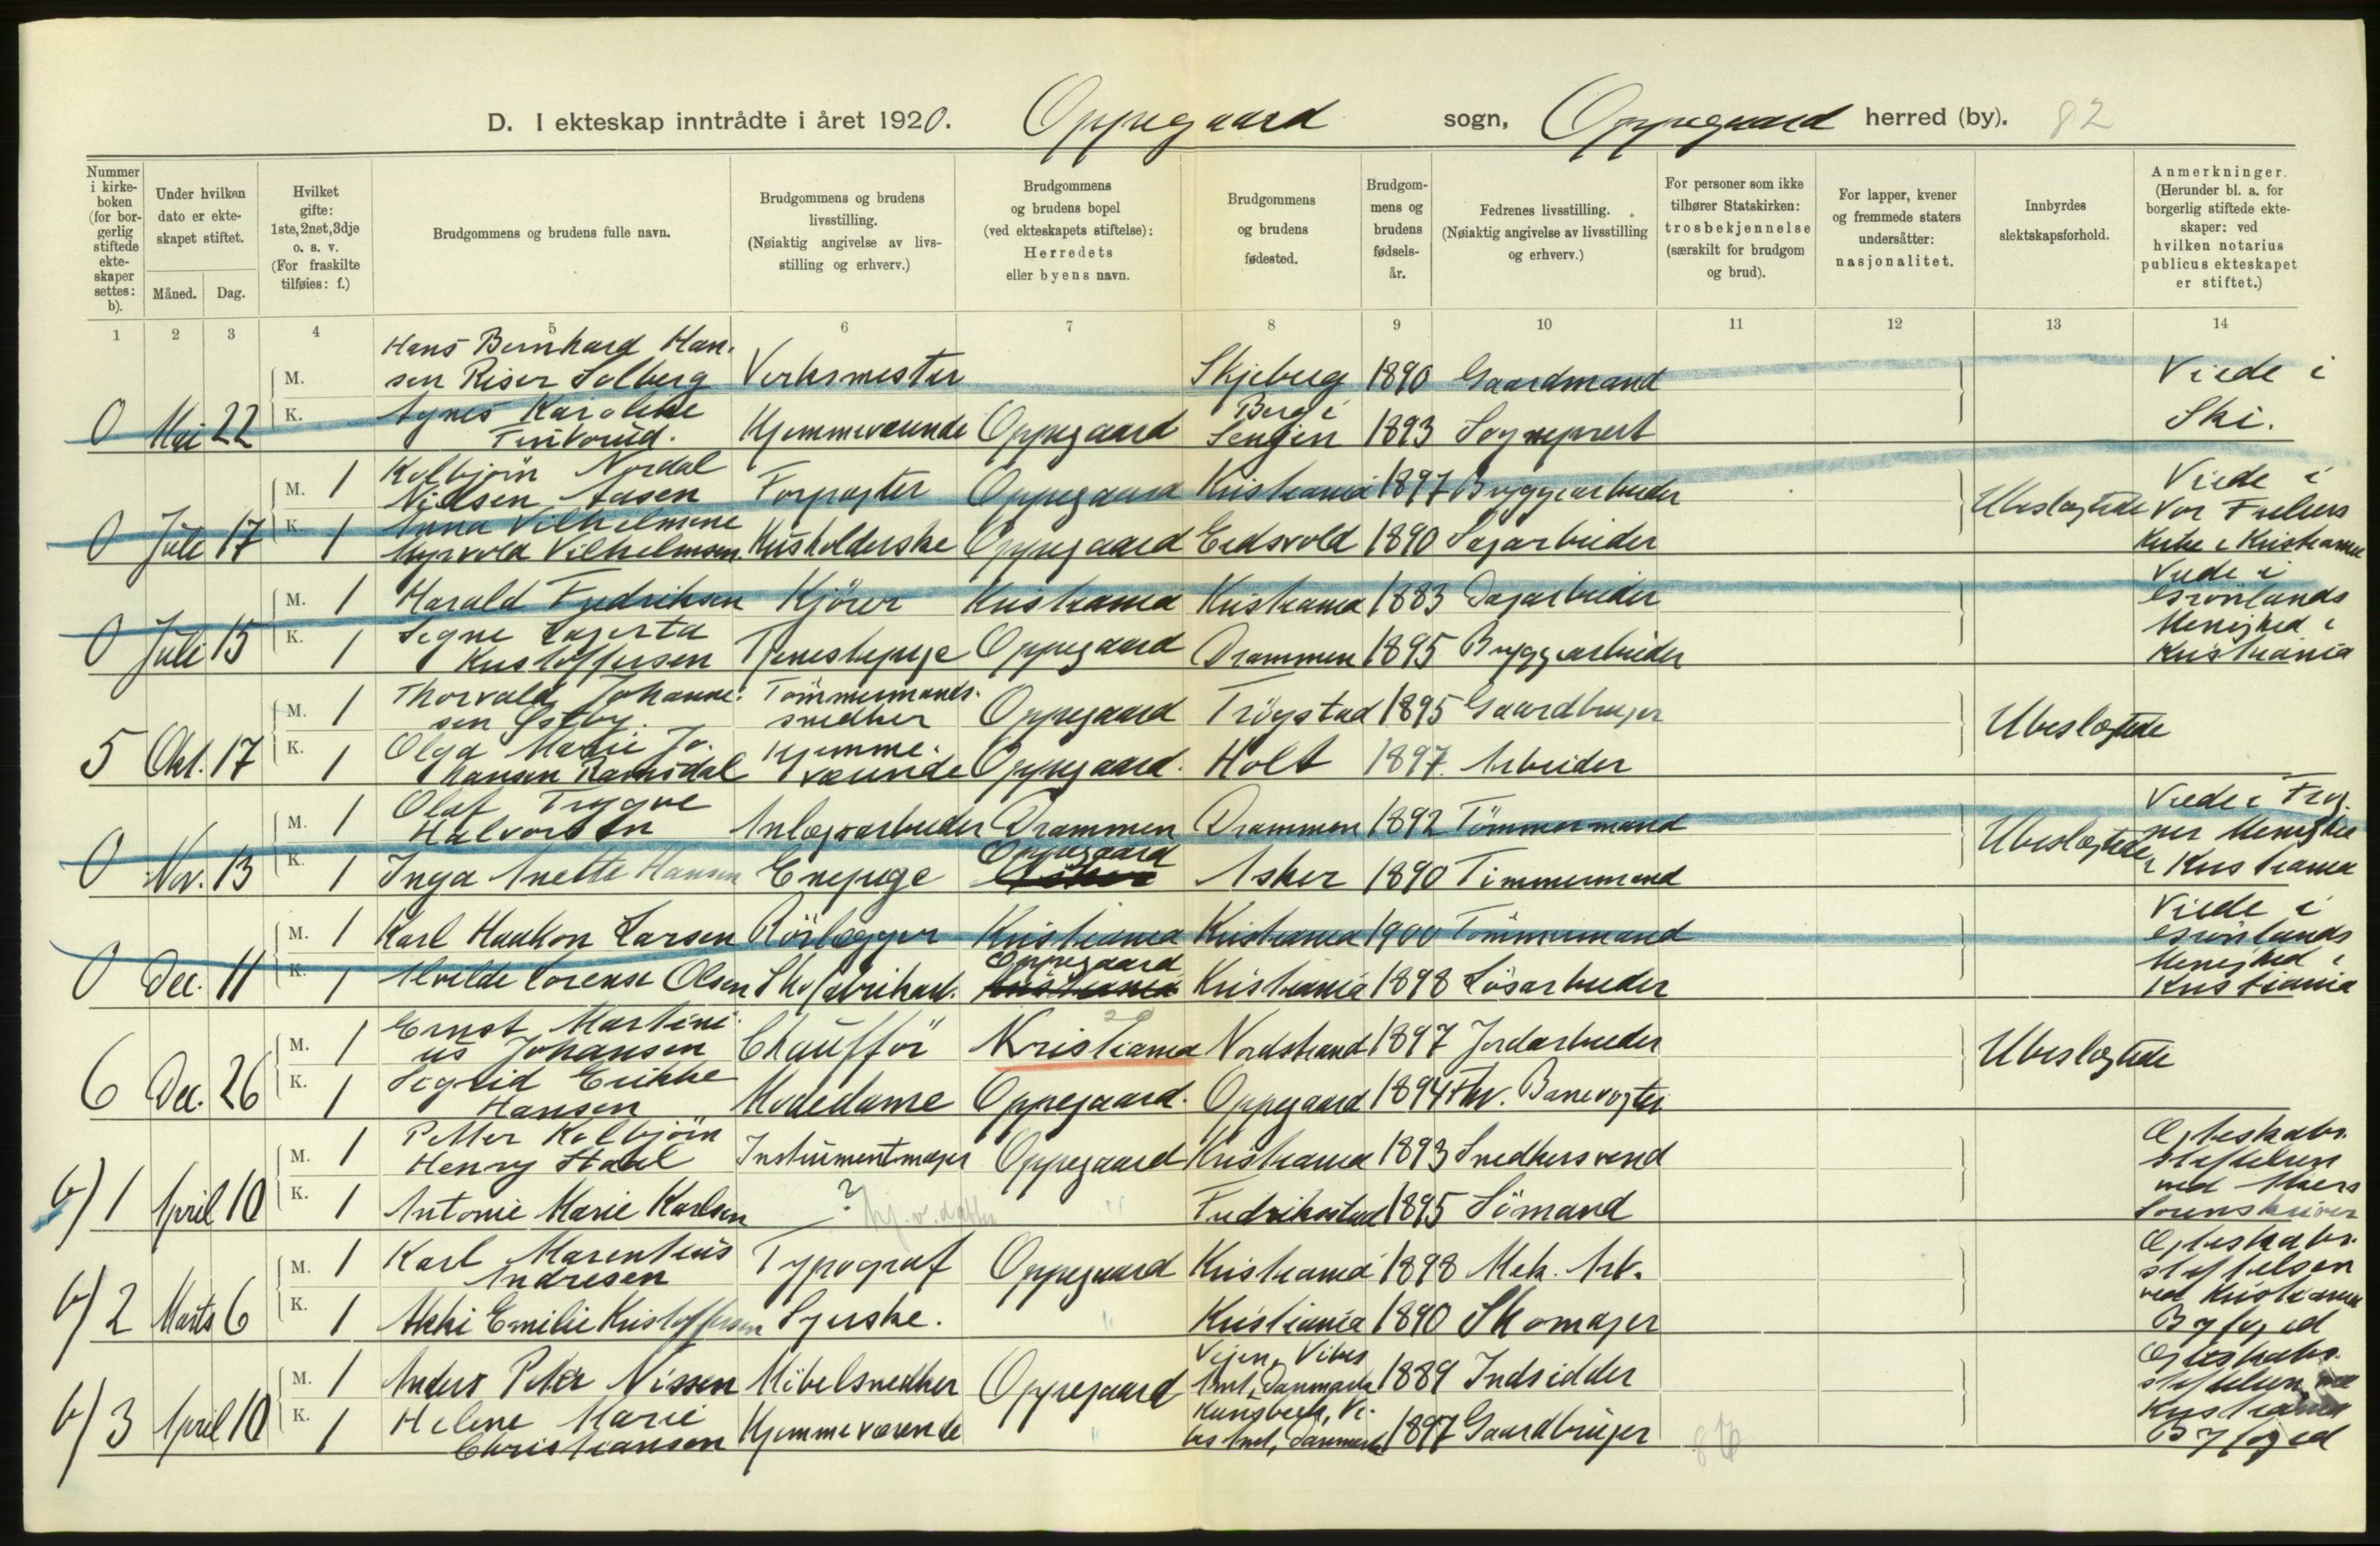 D. I ekteskap inntrådte i året 1920. Oppegaard sogn, Oppegaard herred (by). 82
Nummer i kirke-boken (for bor-gerlig stiftede ekte-skaper settes: b).
Under hvilken dato er ekte-skapet stiftet.
Måned. Dag.
Hvilket gifte: 1ste, 2net, 3dje o. s. v. (For fraskilte tilføies: f.)
Brudgommens og brudens fulle navn.
Brudgommens og brudens livsstilling. (Nøiaktig angivelse av livs-stilling og erhverv.)
Brudgommens og brudens bopel (ved ekteskapets stiftelse): Herredets eller byens navn.
Brudgommens og brudens fødested.
Brudgom-mens og brudens fødsels-år.
Fedrenes livsstilling. (Nøiaktig angivelse av livsstilling og erhverv.)
For personer som ikke tilhører Statskirken: trosbekjennelse (særskilt for brudgom og brud).
For lapper, kvener og fremmede staters undersåtter: nasjonalitet.
Innbyrdes slektskapsforhold.
Anmerkninger. (Herunder bl. a. for borgerlig stiftede ekte-skaper: ved hvilken notarius publicus ekteskapet er stiftet.)
1 2 3 4 5 6 7 8 9 10 11 12 13 14
Hans Bernhard Han-
M. sen Riser Solberg Verksmester Skjeberg 1890 Gaardmand Viede i
0 Mai 22 K. Agnes Karoline Hjemmeværende Oppegaard Berg i Senjen 1893 Sogneprest Ski.
M. 1 Kolbjörn Nordal
Nielsen Aasen Forpagter Oppegaard Kristiania 1897 Bryggearbeider Ubeslægtede Viede i
0 Juli 17 K. 1 Anna Vilhelmine Vor Frelsers
Vilhelmsen Husholderske Oppegaard Eidsvold 1890 Sagarbeider Kirke i Kristiania
M. 1 Harald Fredriksen Kjörer Kristiania Kristiania 1883 Dagarbeider Viede i Grönlands
0 Juli 15 K. 1 Signe Lagerta
Kristoffersen Tjenestepige Oppegaard Drammen 1895 Bryggearbeider Menighed i Kristiania
M. 1 Thorvald Johanne-
sen Østby. Tömmermands-snedker Oppegaard Trögstad 1895 Gaardbruger Ubeslægtede
5 Okt. 17 K. 1 Olga Marie Jo-
hansen Ramsdal Hjemme-værende Oppegaard. Holt 1897 Arbeider
M. 1 Olaf Trygve
Halvorsen Anlægsarbeider Drammen Drammen 1892 Tömmermand Ubeslægtede Viede i Frog-
0 Nov. 13 K. 1 Inga Anette Hansen Enepige Oppegaard Asker 1890 Timmermand ner Menighed i Kristiania
M. 1 Karl Haakon Larsen Rörlægger Kristiania Kristiania 1900 Tömmermand Viede i Grönlands
0 Dec. 11 K. 1 Alvilde Lorense Olsen Skofabrikarb. Oppegaard Kristiania 1898 Lösarbeider Menighed i Kristiania
M. 1 Ernst Martini-
us Johansen Chaufför Kristiania Nordstrand 1897 Jordarbeider Ubeslægtede
6 Dec. 26 K. 1 Sigrid Erikke
Hansen Modedame Oppegaard. Oppegaard 1894 Fhv. Banevogter
M. 1 Petter Kolbjörn
Henry Stahl Instrumentmager Oppegaard Kristiania 1893 Snedkersvend Ægteskabs-stiftelsen
b) 1 April 10 K. 1 Antonie Marie Karlsen ? hj. v. datter " Fredrikstad 1895 Sömand ved Akers Sorenskriver
M. 1 Karl Marentius
Andresen Typograf Oppegaard Kristiania 1898 Mek. Arb. Ægteskabs-stiftelsen
b) 2 Marts 6 K. 1 Emilie Kristoffersen Syerske. " Kristiania 1890 Skomager ved Kristiania Byfoged
M. 1 Anders Peter Nissen Möbelsnedker Oppegaard Vejen, Ribes Amt, Danmark 1889 Indsidder Ægteskabs-stiftelsen ved
b) 3 April 10 K. 1 Helene Marie
Christiansen Hjemmeværende " Amt, Danmark 1897 Gaardbruger Kristiania Byfoged